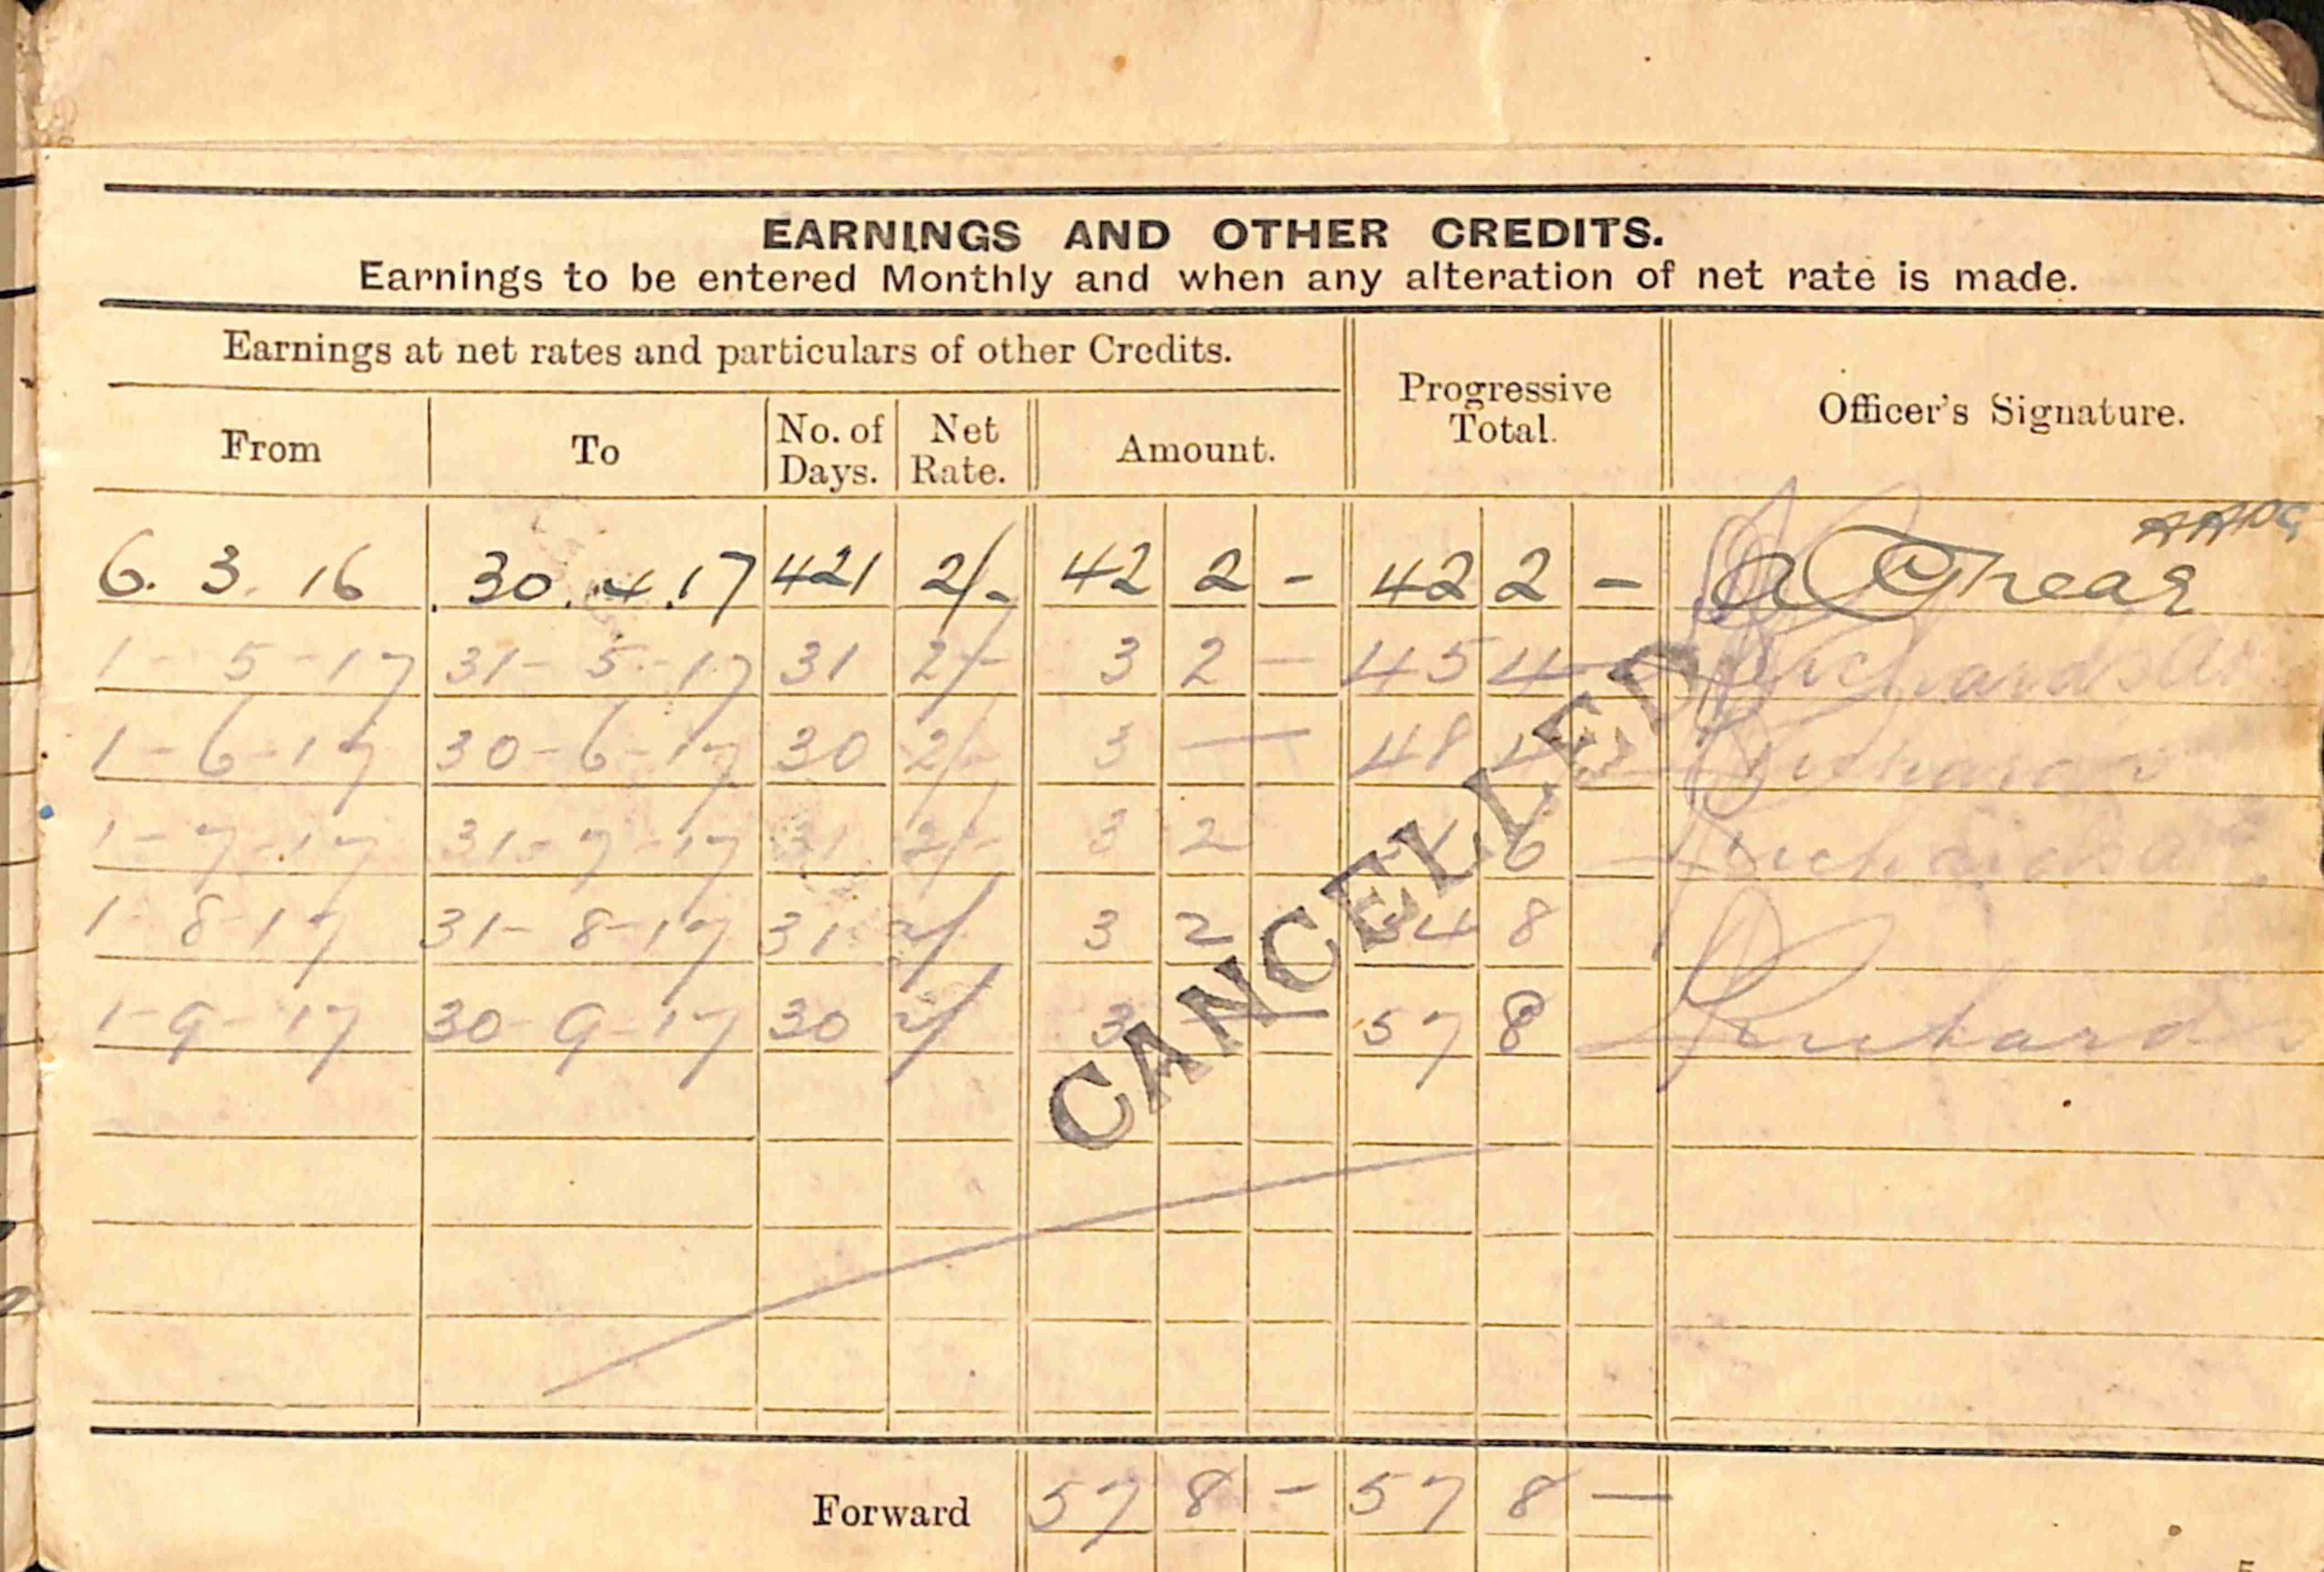 EARNINGS AND OTHER CREDITS.
Earnings to be entered Monthly and when any alteration of net rate is made.
Earnings at net rates and particulars of other Credits.
Progressive Total.
Officer's Signature.
From To No. of Days. Net Rate. Amount.
6. 3. 16 30.4.17 421 2/- 42 2 - 42 2 -
1-5-17 31-5-17 31 2/- 3 2 - 45 4 -
1-6-17 30-6-17 30 2/- 3 — 48 4
1-7-17 31-7-17 31 2/- 3 2 6
1 8-17 31-8-17 31 2/ 3 2 54 8
1-9-17 30-9-17 30 2/ 3 — 57 8
CANCELLED
Forward 57 8 - 57 8 —